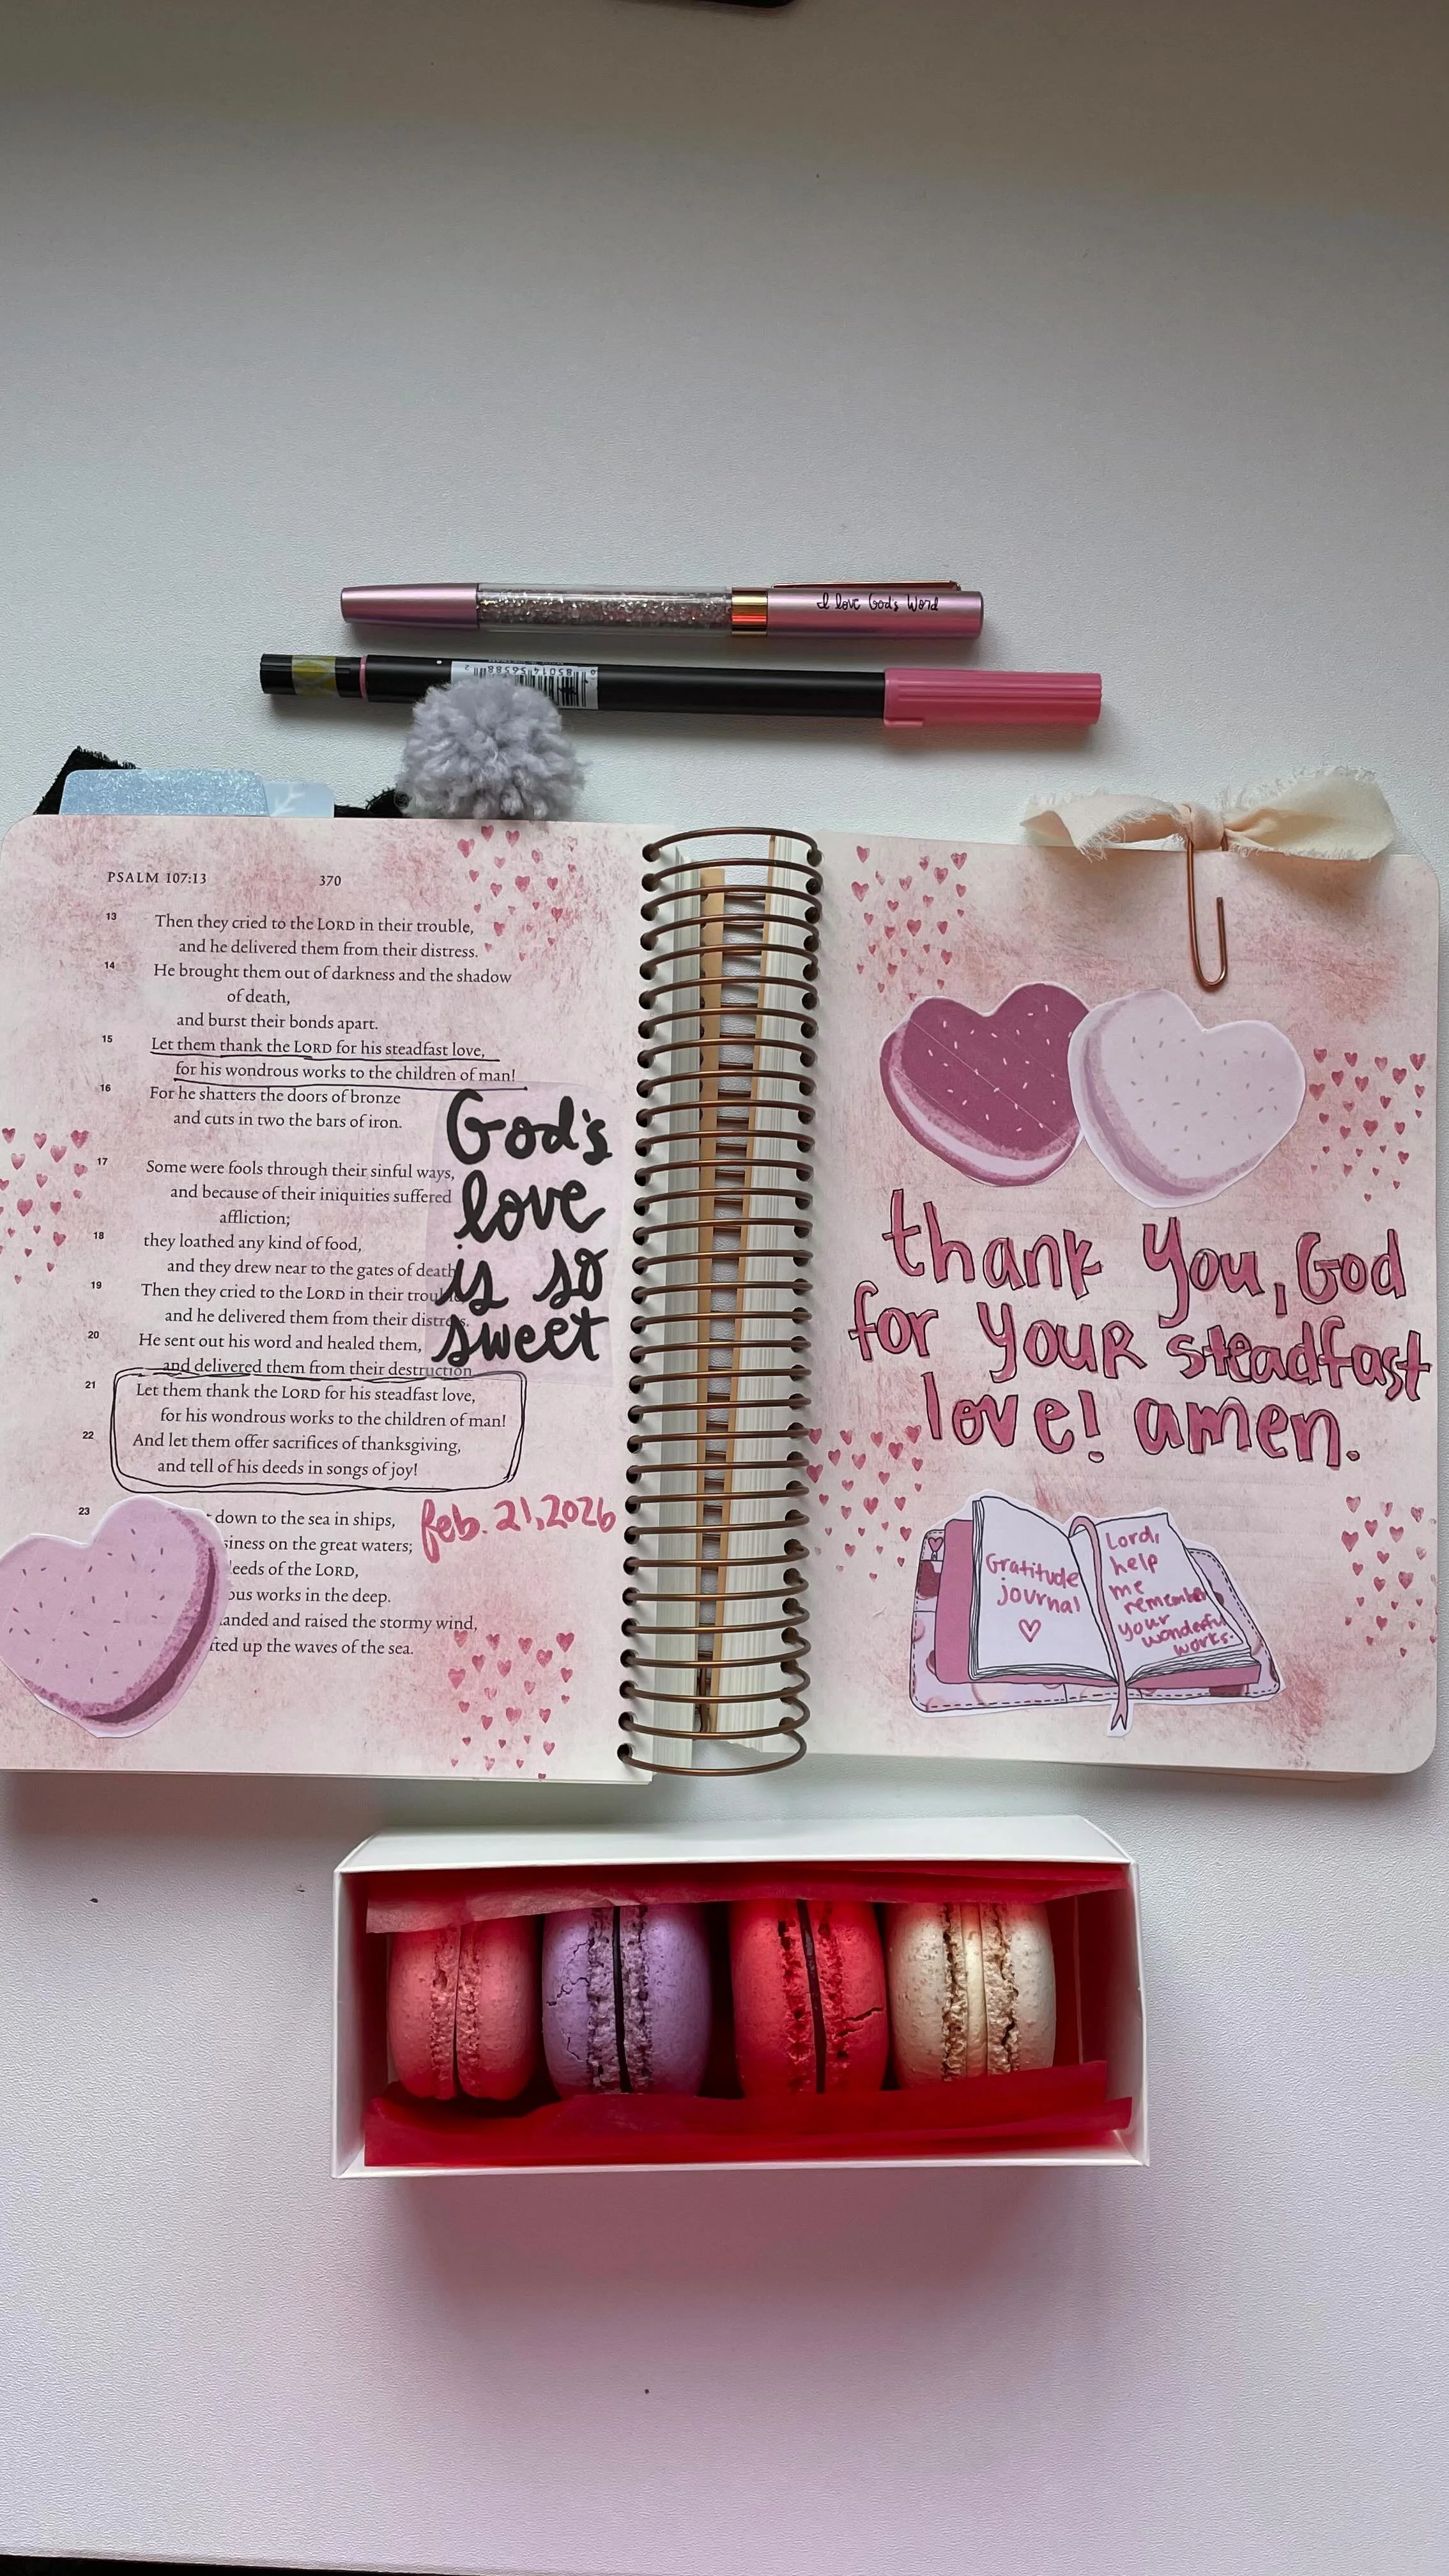 I love God's Word
PSALM 107:13
370
13 Then they cried to the LORD in their trouble,
and he delivered them from their distress.
14 He brought them out of darkness and the shadow
of death,
and burst their bonds apart.
15 Let them thank the LORD for his steadfast love,
for his wondrous works to the children of man!
16 For he shatters the doors of bronze
and cuts in two the bars of iron.
17 Some were fools through their sinful ways,
and because of their iniquities suffered
affliction;
18 they loathed any kind of food,
and they drew near to the gates of death
19 Then they cried to the LORD in their trou
and he delivered them from their distress.
20 He sent out his word and healed them,
and delivered them from their destruction
21 Let them thank the LORD for his steadfast love,
for his wondrous works to the children of man!
22 And let them offer sacrifices of thanksgiving,
and tell of his deeds in songs of joy!
23 down to the sea in ships,
siness on the great waters;
deeds of the LORD,
ous works in the deep.
anded and raised the stormy wind,
fted up the waves of the sea.
God's
love
is so
sweet
feb. 21, 2026
thank you, God
for your steadfast
love! amen.
Gratitude
journal
Lord,
help
me
remember
your
wonderful
works.